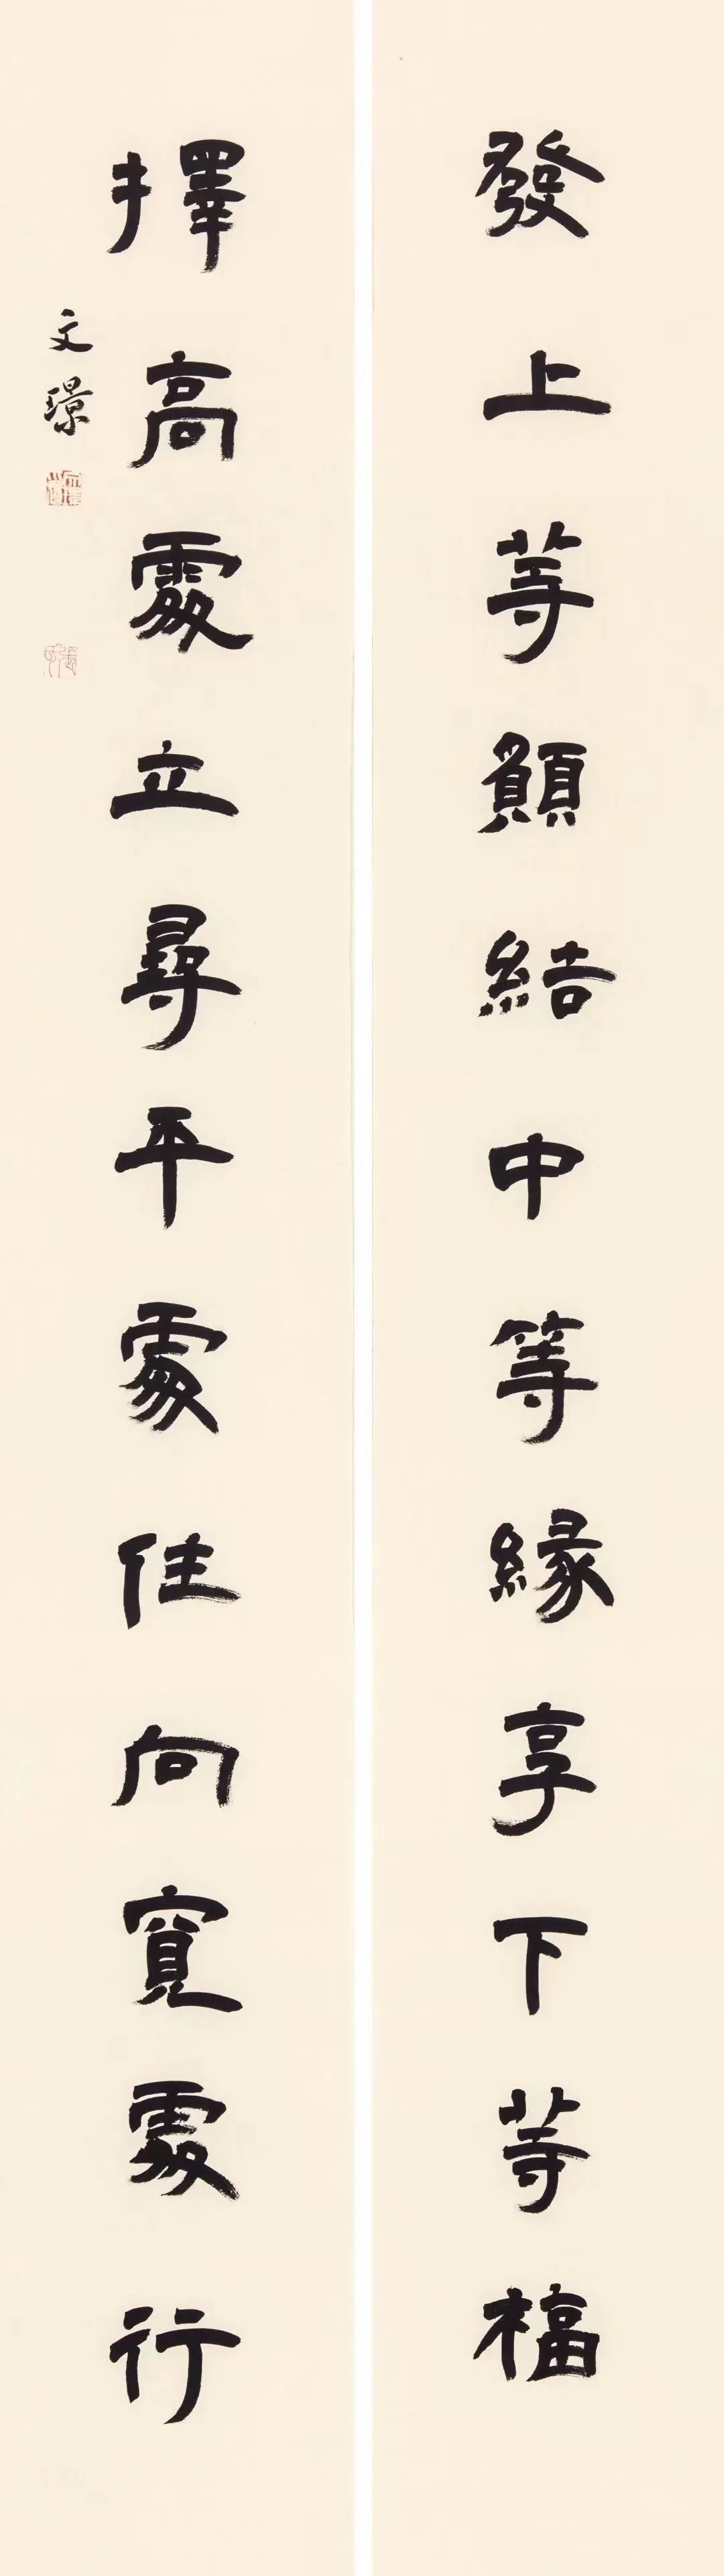 發上等願結中等緣享下等福
擇高處立尋平處住向寬處行
文璟